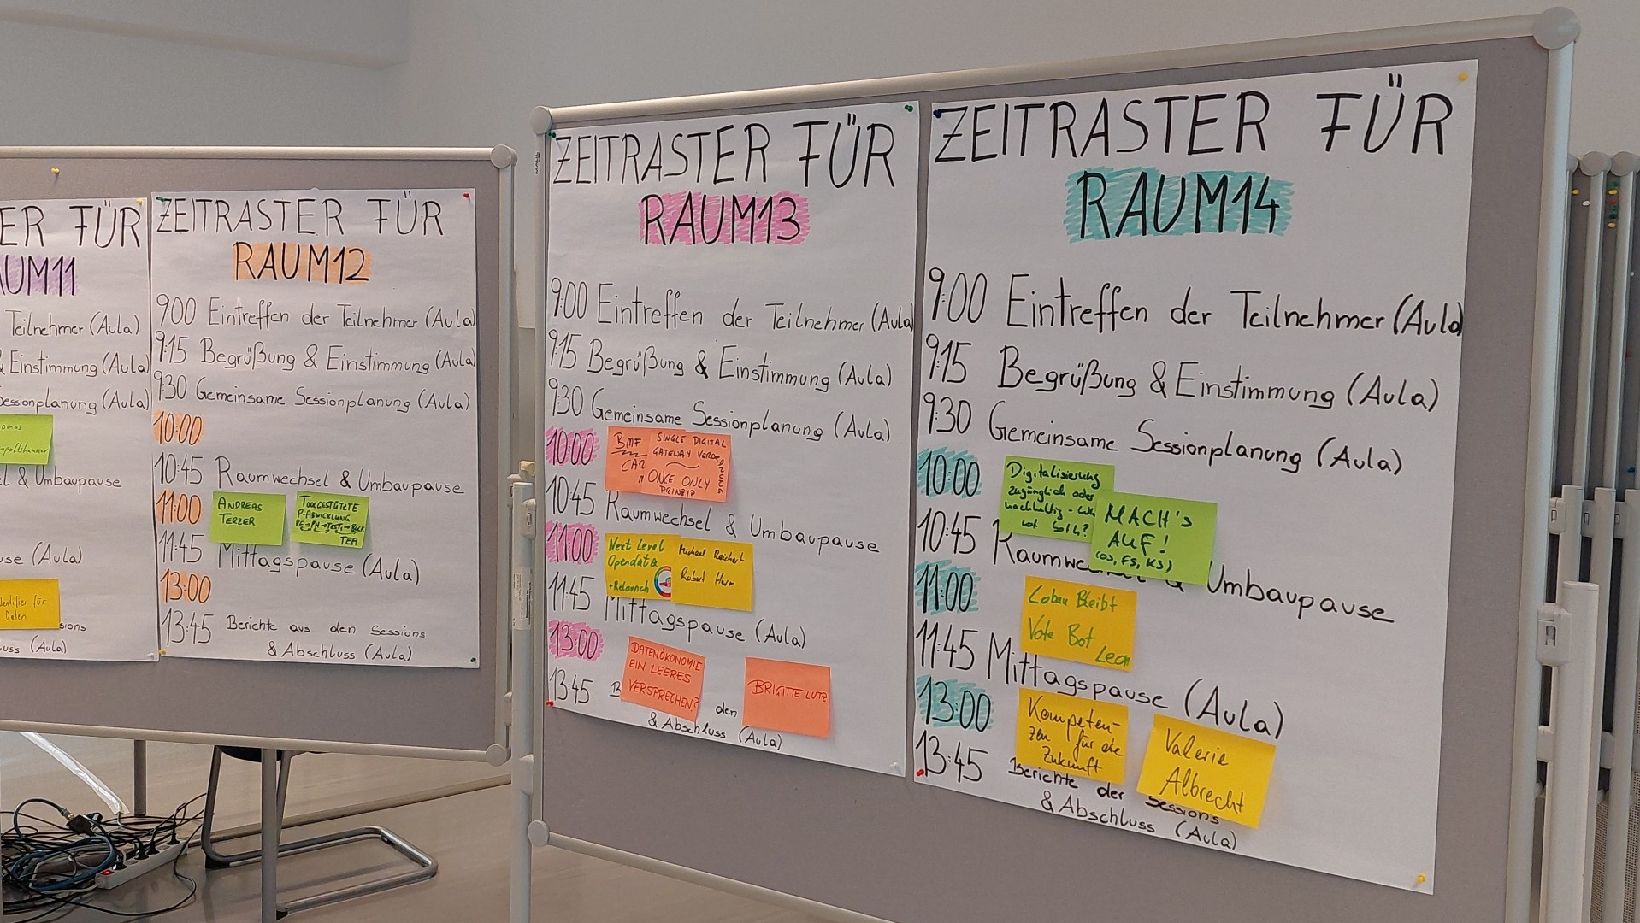 ER FÜR
UM11
Teilnehmer (Aula)
& Einstimmung (Aula)
Sessionplanung (Aula)
& Umbaupause
use (Aula)
für
(Aula)
ZEITRASTER FÜR
RAUM12
9:00 Eintreffen der Teilnehmer (Aula)
9:15 Begrüßung & Einstimmung (Aula)
9:30 Gemeinsame Sessionplanung (Aula)
10:00
10:45 Raumwechsel & Umbaupause
11:00
ANDREAS
TERZER
TOOLGESTÜTZTE
11:45 Mittagspause (Aula)
13:00
13:45 Berichte aus den Sessions
& Abschluss (Aula)
ZEITRASTER FÜR
RAUM13
9:00 Eintreffen der Teilnehmer (Aula)
9:15 Begrüßung & Einstimmung (Aula)
9:30 Gemeinsame Sessionplanung (Aula)
10:00
BMF
SINGLE DIGITAL
GATEWAY VERORDNUNG
ONCE ONLY
PRINZIP
10:45 Raumwechsel & Umbaupause
11:00
Next Level
Opendata
Michael Reichert
Robert
11:45 Mittagspause (Aula)
13:00
DATENÖKONOMIE
EIN LEERES
VERSPRECHEN?
BRIGITE LUTZ
13:45 B den
& Abschluss (Aula)
ZEITRASTER FÜR
RAUM14
9:00 Eintreffen der Teilnehmer (Aula)
9:15 Begrüßung & Einstimmung (Aula)
9:30 Gemeinsame Sessionplanung (Aula)
10:00
Digitalisierung
zugänglich oder
nachhaltig
MACH's
AUF!
(OS, FS, KS)
10:45 Raumwechsel & Umbaupause
11:00
Leben Bleibt
Vote Bot
Leon
11:45 Mittagspause (Aula)
13:00
Kompeten-
zen für die
Zukunft
Valerie
Albrecht
13:45 Berichte der Sessions
& Abschluss (Aula)